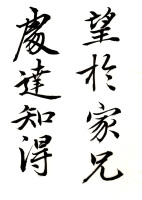 望於家兄
處達知得